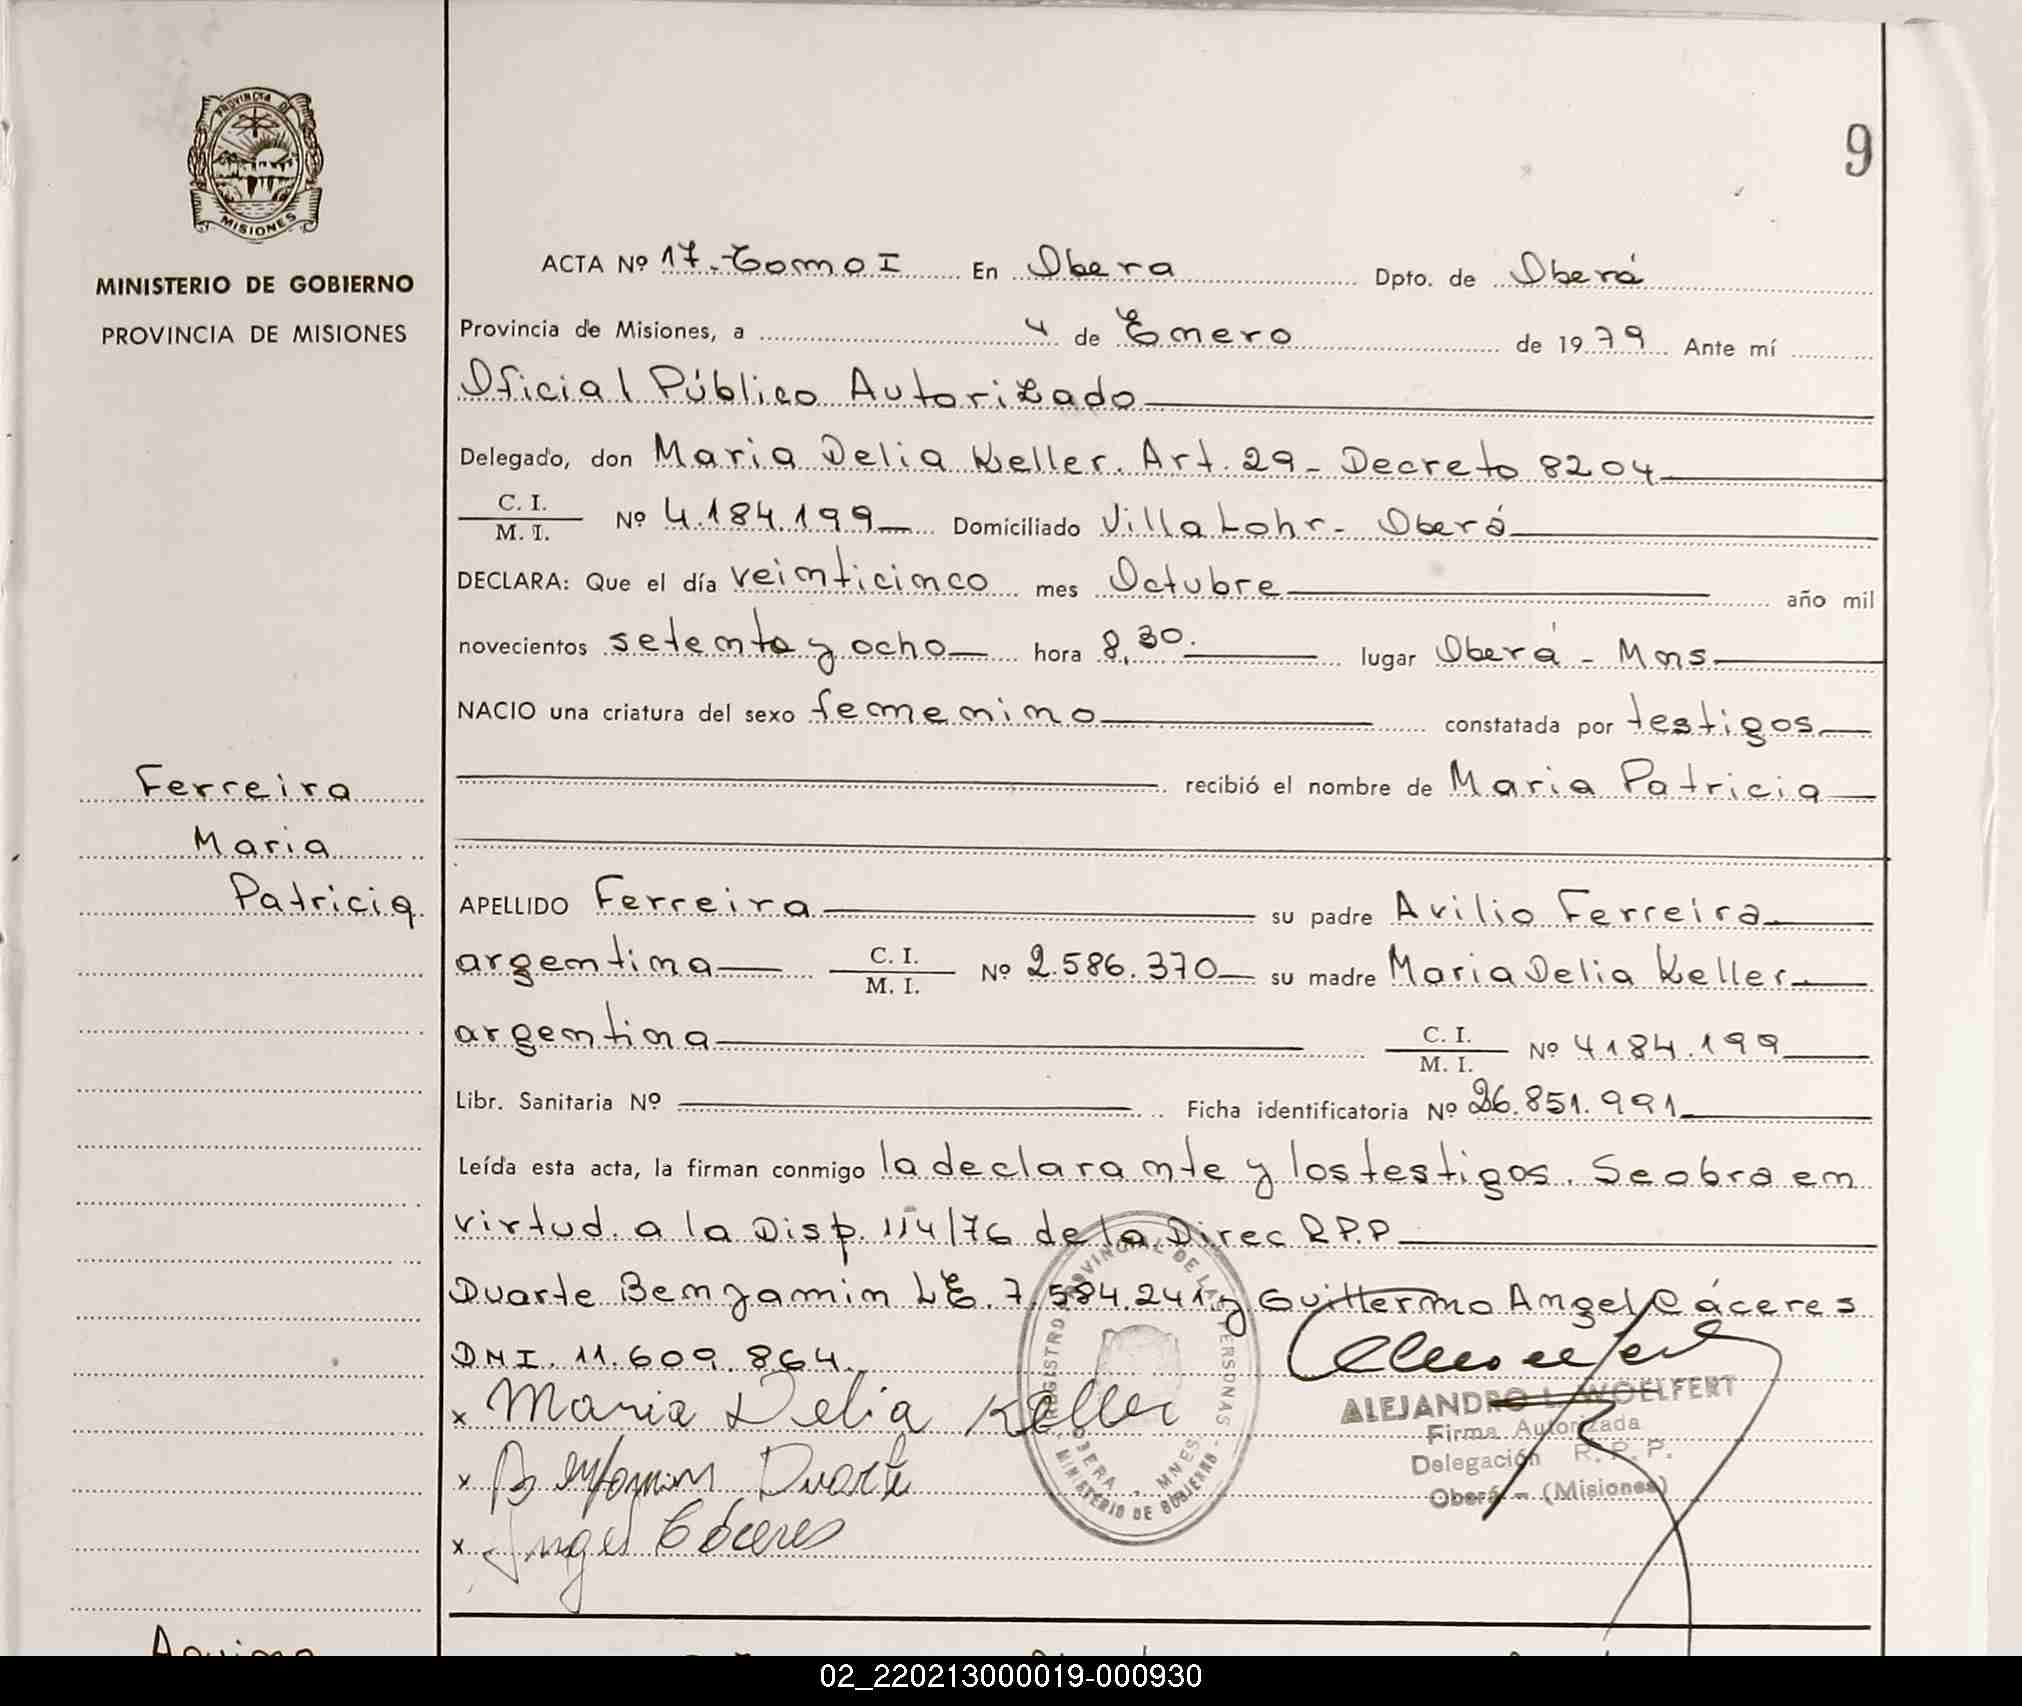 9
PROVINCIA DE
MISIONES
MINISTERIO DE GOBIERNO
PROVINCIA DE MISIONES
ACTA Nº 17.-Tomo I En Obera Dpto. de Oberá
Provincia de Misiones, a 4 de Enero de 1979 Ante mí
Oficial Público Autorizado
Delegado, don Maria Delia Keller. Art. 29- Decreto 8204
C. I.
M. I. Nº 4.184.199 Domiciliado Villa Lohr- Oberá
DECLARA: Que el día veinticinco mes Octubre año mil
novecientos setenta y ocho hora 8,30. lugar Oberá - Mns
NACIO una criatura del sexo femenino constatada por testigos
recibió el nombre de Maria Patricia
Ferreira
Maria
Patricia
APELLIDO Ferreira su padre Avilio Ferreira
argentina C. I.
M. I. Nº 2.586.370 su madre Maria Delia Keller
argentina C. I.
M. I. Nº 4184.199
Libr. Sanitaria Nº Ficha identificatoria Nº 26.851.991
Leída esta acta, la firman conmigo la declarante y los testigos. Se obra en
virtud a la Disp. 114/76 de la Direc R.P.P
Duarte Benjamin LE. 7.584.241 y Guillermo Angel Cáceres
DNI. 11.609.864.
x Maria Delia Keller
x Benjamin Duarte
x Angel Cáceres
REGISTRO PROVINCIAL DE LAS PERSONAS
OBERA - MNES.
MINISTERIO DE GOBIERNO
ALEJANDRO L. WOELFERT
Firma Autorizada
Delegación R. P. P.
Oberá - (Misiones)
Aquino
02_220213000019-000930